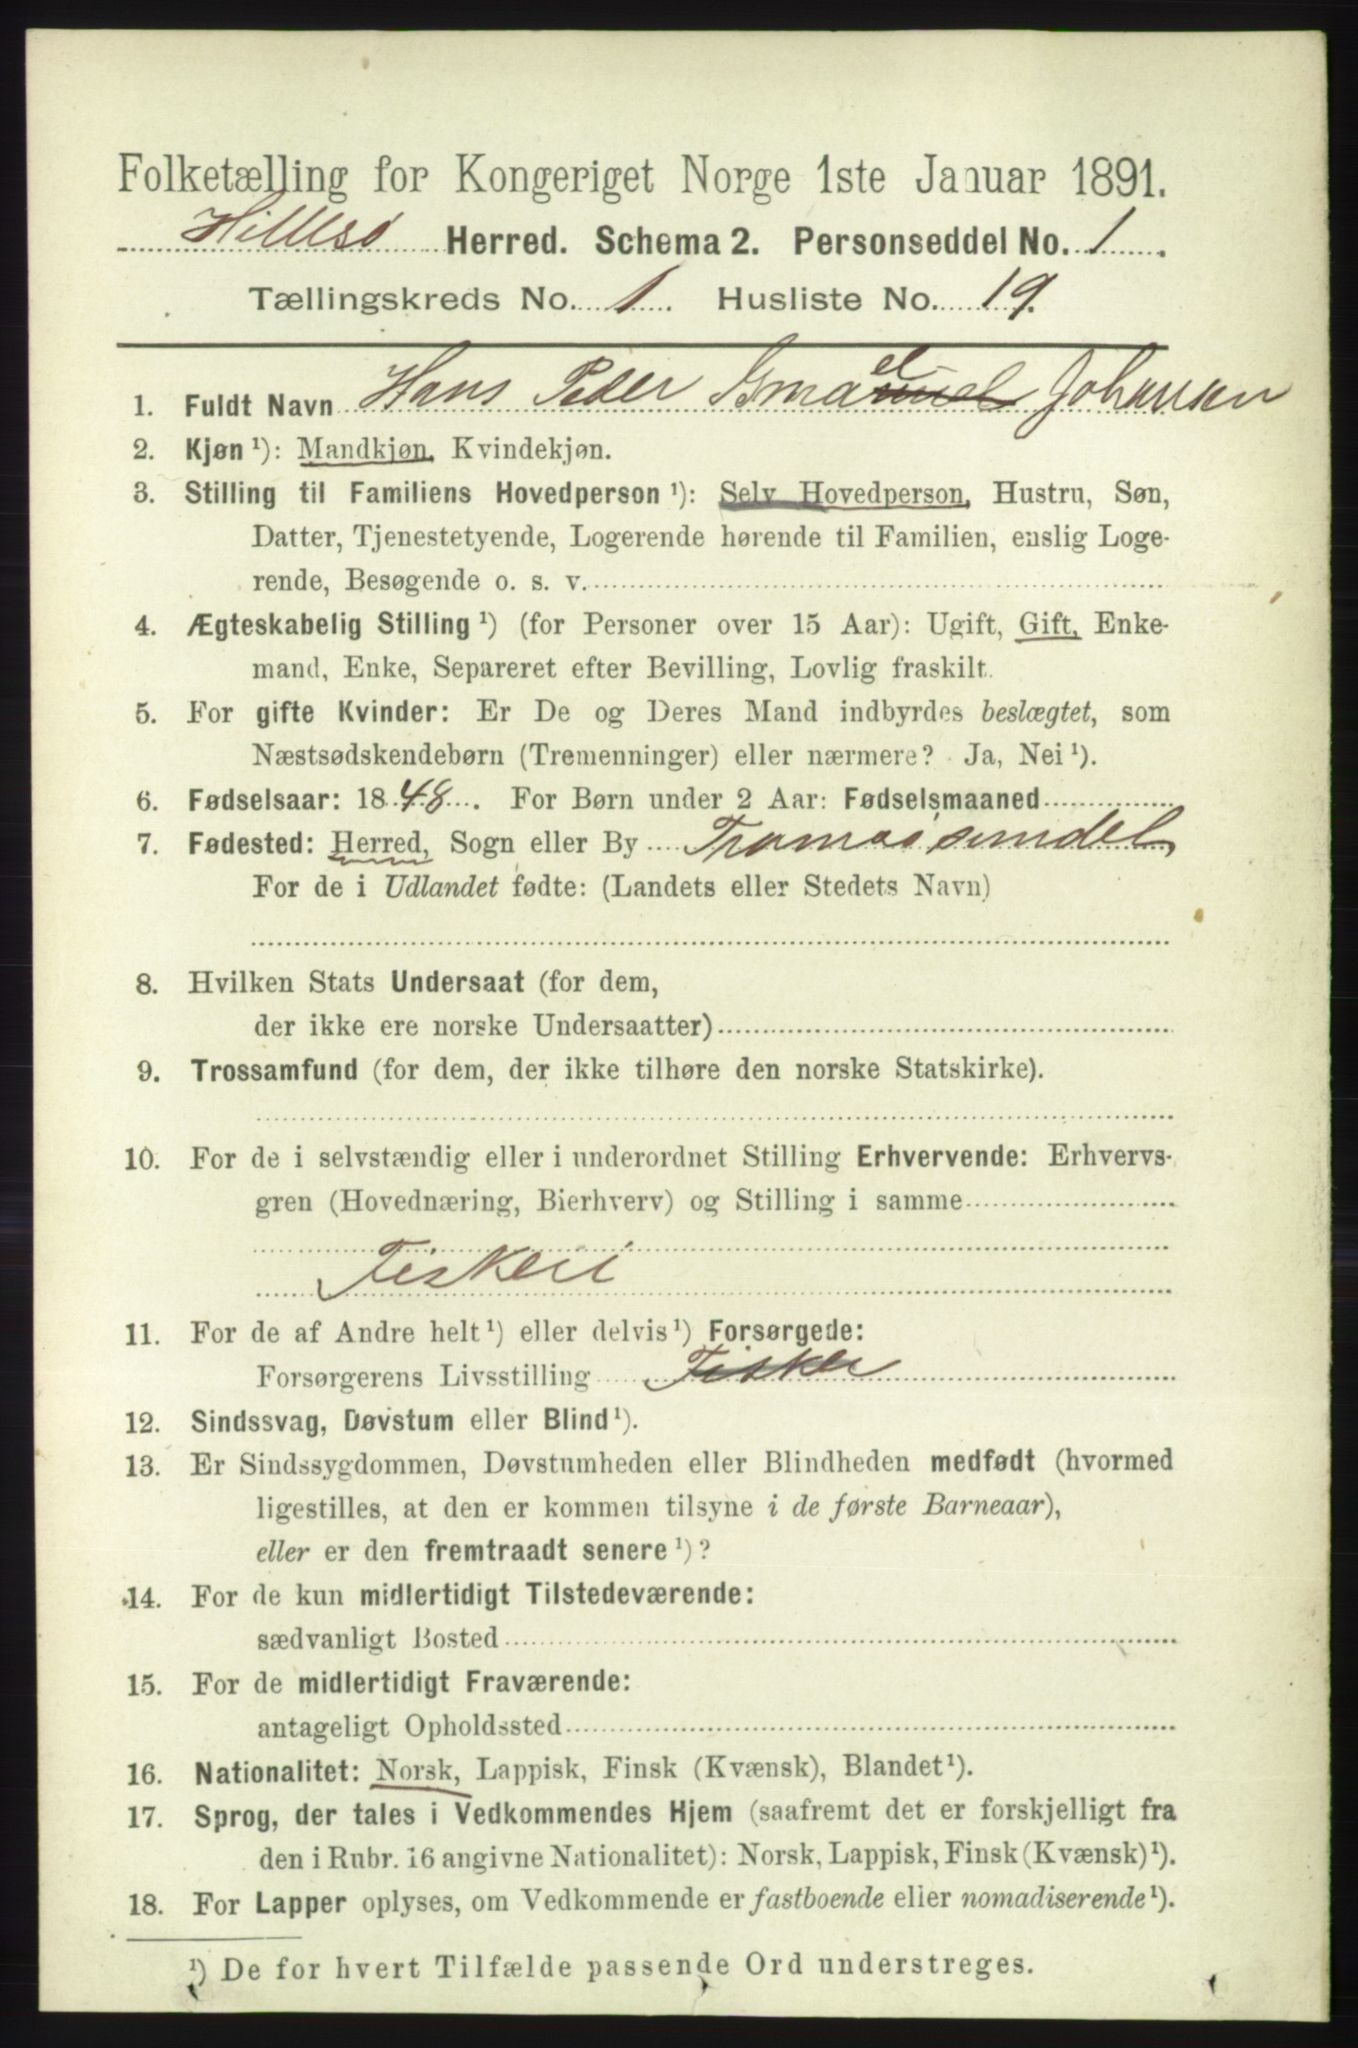 Folketælling for Kongeriget Norge 1ste Januar 1891.
Hillesø Herred. Schema 2. Personseddel No. 1.
Tællingskreds No. 1. Husliste No. 19.
el
1. Fuldt Navn Hans Peder Ismanuel Johansen
2. Kjøn ¹): Mandkjøn, Kvindekjøn.
3. Stilling til Familiens Hovedperson ¹): Selv Hovedperson, Hustru, Søn,
Datter, Tjenestetyende, Logerende hørende til Familien, enslig Loge-
rende, Besøgende o. s. v.
4. Ægteskabelig Stilling ¹) (for Personer over 15 Aar): Ugift, Gift, Enke-
mand, Enke, Separeret efter Bevilling, Lovlig fraskilt.
5. For gifte Kvinder: Er De og Deres Mand indbyrdes beslægtet, som
Næstsødskendebørn (Tremenninger) eller nærmere? Ja, Nei ¹).
6. Fødselsaar: 1848. For Børn under 2 Aar: Fødselsmaaned
7. Fødested: Herred, Sogn eller By Tromsøsundet
For de i Udlandet fødte: (Landets eller Stedets Navn)
8. Hvilken Stats Undersaat (for dem,
der ikke ere norske Undersaatter)
9. Trossamfund (for dem, der ikke tilhøre den norske Statskirke).
10. For de i selvstændig eller i underordnet Stilling Erhvervende: Erhvervs-
gren (Hovednæring, Bierhverv) og Stilling i samme
Fiskeri
11. For de af Andre helt ¹) eller delvis ¹) Forsørgede:
Forsørgerens Livsstilling Fisker
12. Sindssvag, Døvstum eller Blind ¹).
13. Er Sindssygdommen, Døvstumheden eller Blindheden medfødt (hvormed
ligestilles, at den er kommen tilsyne i de første Barneaar),
eller er den fremtraadt senere ¹)?
14. For de kun midlertidigt Tilstedeværende:
sædvanligt Bosted
15. For de midlertidigt Fraværende:
antageligt Opholdssted
16. Nationalitet: Norsk, Lappisk, Finsk (Kvænsk), Blandet ¹).
17. Sprog, der tales i Vedkommendes Hjem (saafremt det er forskjelligt fra
den i Rubr. 16 angivne Nationalitet): Norsk, Lappisk, Finsk (Kvænsk) ¹).
18. For Lapper oplyses, om Vedkommende er fastboende eller nomadiserende ¹).
¹) De for hvert Tilfælde passende Ord understreges.